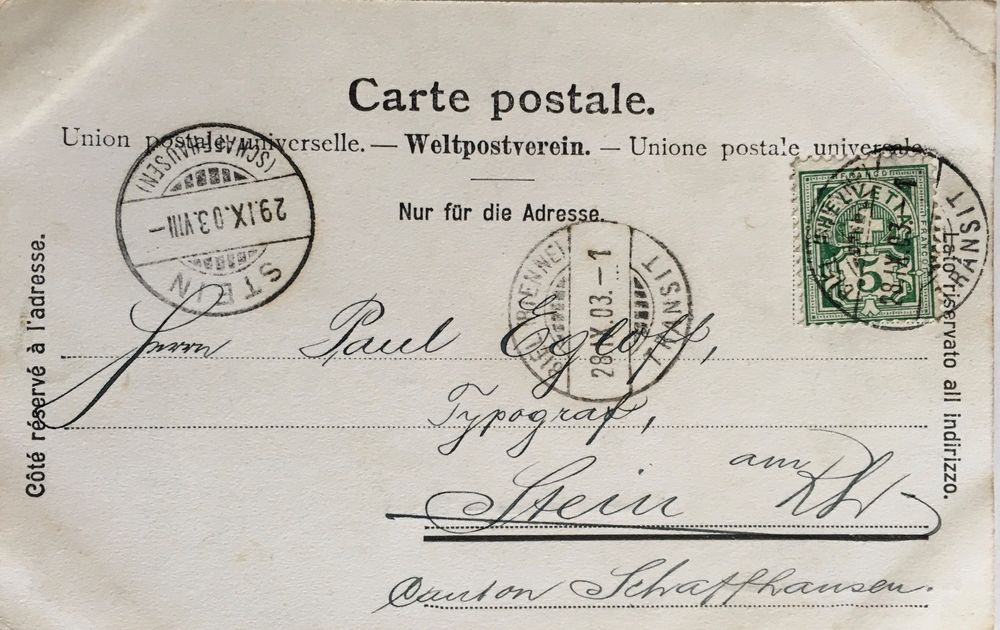 Carte postale.
Union postale universelle. — Weltpostverein. — Unione postale universale
Nur für die Adresse.
Côté réservé à l'adresse.
Lato riservato all indirizzo.
STEIN
(SCHAFFHAUSEN)
29.IX.03.VIII—
BIEL (BIENNE)
28.IX.03.—1
TRANSIT
HELVETIA
FRANCO
5
TRANSIT
Herrn Paul Egloff,
Typograf,
Stein am Rh.
Canton Schaffhausen.